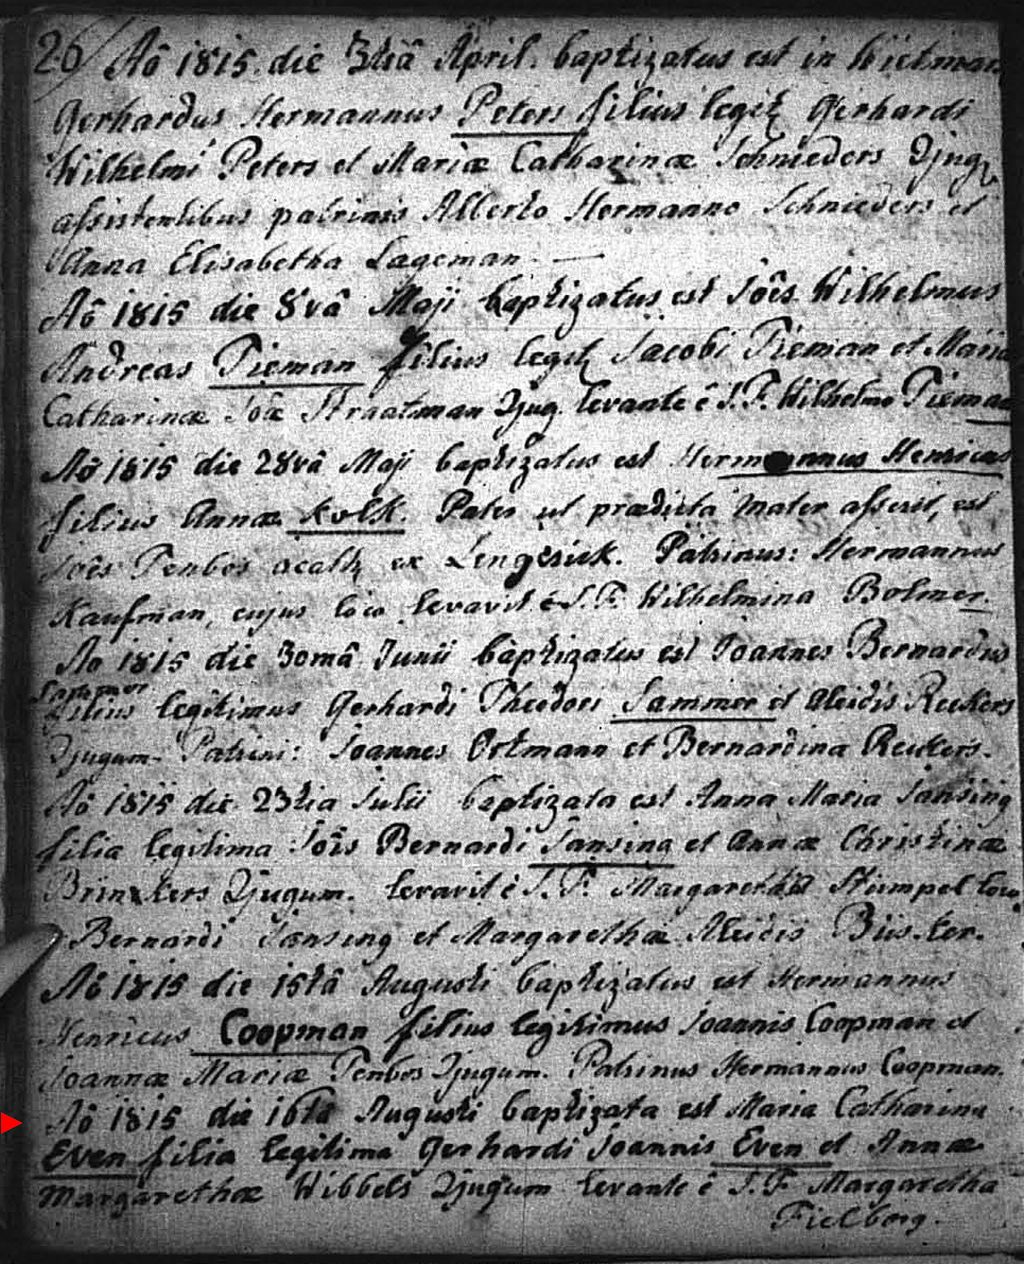 26/ Aô 1815. die 3tiâ April. baptizatus est in Wietman
Gerhardus Hermannus Peters filius legit Gerhardi
Wilhelmi Peters et Mariæ Catharinæ Schnieders Qjug
assistentibus patrinis Alberto Hermanno Schnieders et
Anna Elisabetha Lageman. —
Aô 1815 die 8vâ Maji baptizatus est Joês Wilhelmus
Andreas Pieman filius legit Jacobi Pieman et Maria
Catharinæ Straatman Qjug. levante ê S.F. Wilhelmo Pieman
Aô 1815 die 28vâ Maji baptizatus est Hermannus Henricus
filius Annæ Kolk. Pater ut prædicta mater asserit, est
Joês Tenbos acath ex Lengerick. Patrinus: Hermannus
Kaufman, cujus loco levavit ê S.F. Wilhelmina Bolmer.
Ao 1815 die 30mâ Junii baptizatus est Joannes Bernardus
Sammer
filius legitimus Gerhardi Theodori Sammer et Aleidis Reukers
Qjugum. Patrini: Joannes Ortmann et Bernardina Reukers.
Aô 1815 die 23tia Julii baptizata est Anna Maria Jansing
filia legitima Joîs Bernardi Jansing et Annæ Christinæ
Brinkers Qjugum. levavit ê S.F. Margaretha Stumpel loco
Bernardi Jansing et Margarethæ Aleidis Büs-ker.
Aô 1815 die 15tâ Augusti baptizatus est Hermannus
Henricus Coopman filius legitimus Joannis Coopman et
Joannæ Mariæ Tenbos Qjugum. Patrinus Hermannus Coopman.
Aô 1815 die 16ta Augusti baptizata est Maria Catharina
Even filia legitima Gerhardi Joannis Even et Annæ
Margarethæ Wibbels Qjugum levante ê S.F Margaretha
Fielborg.